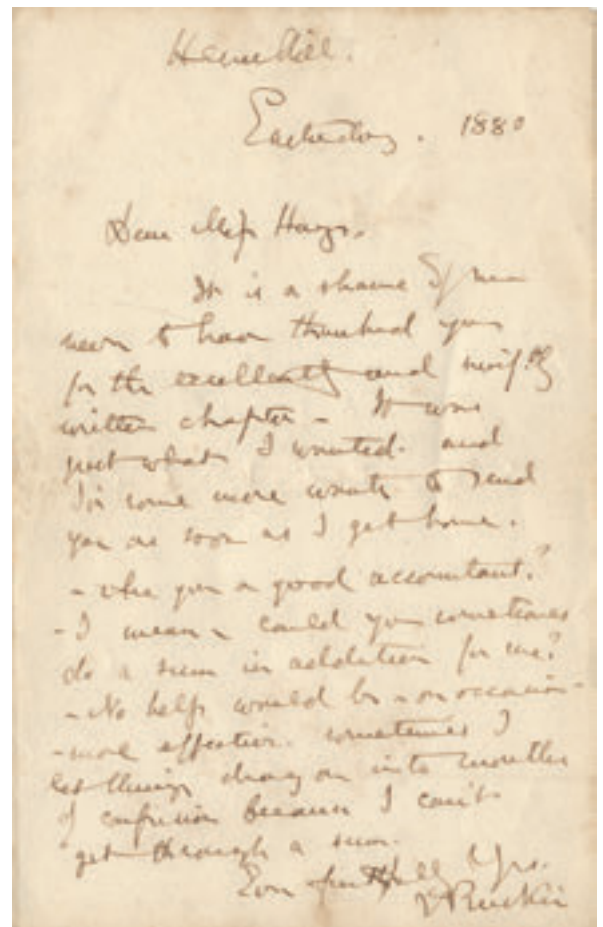 Herne Hill.
Easterday. 1880
Dear Miss Hays.
It is a shame of me
never to have thanked you
for the excellently and swiftly
written chapter - It was
just what I wanted. and
I've some more work to send
you as soon as I get home.
- Are you a good accountant?
- I mean - could you sometimes
do a sum in addition for me?
- No help would be - on occasion -
- more effective. sometimes I
let things drag on into months
of confusion because I can't
get through a sum.
Ever faithfully Yrs.
J Ruskin